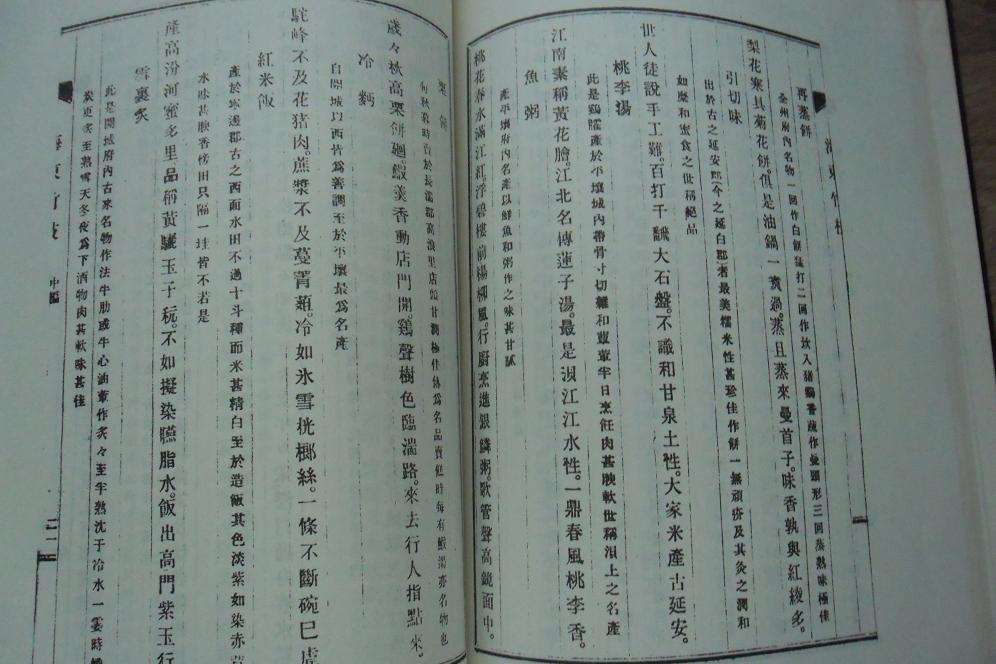 海東竹枝
再蒸餅
全州府內名物一回作白餅猛打二回作坎入猪鷄香蔬作曼頭形三回蒸熟味極佳
梨花寒具菊花餅。俱是油鍋一煑過。蒸且蒸來曼首子。味香孰與紅綾多。
引切味
出於古之延安郡(今之延白郡)者最美糯米性甚珍佳作餅一無頑疥及其灸之潤和
如麈和蜜食之世稱絕品
世人徒說手工難。百打千翻大石盤。不識和甘泉土性。大家米產古延安。
桃李湯
此是鷄臛產於平壤城內帶骨寸切雜和葱蕈半日烹飪肉甚腴軟世稱浿上之名產
江南素稱黃花膾。江北名傳蓮子湯。最是浿江江水性。一鼎春風桃李香。
魚粥
產平壤府內名產以鮮魚和粥作之味甚甘膩
桃花春水滿江紅浮碧樓前楊柳風。行廚烹進銀鱗粥。歌管聲高鏡面中。
栗餅
旬秋穀時賣於長湍郡高浪里店頭甘潤極佳仍爲名品賣餅時每有蝦湯亦名物也
歲々秋高栗餅廻。蝦羹香動店門開。鷄聲樹色臨湍路。來去行人指點來。
冷麪
自開城以西皆爲善調至於平壤最爲名產
駝峰不及花猪肉。蔗漿不及蔓菁葅。冷如氷雪桄榔絲。一條不斷碗已虛
紅米飯
產於寧邊郡古之西面水田不過十斗種而米甚精白至於造飯其色淡紫如染赤
水味甚腴香傍田只隔一畦皆不若是
產高汾河蜜多里。品稱黃驪玉子秔。不如擬染臙脂水。飯出高門紫玉行
雪裏炙
此是開城府內古來名物作法牛肋或牛心油葷作炙々至半熟沈于冷水一霎時
炭更炙至熟雪天冬夜爲下酒物肉甚軟味甚佳
海東竹枝
中編
二一